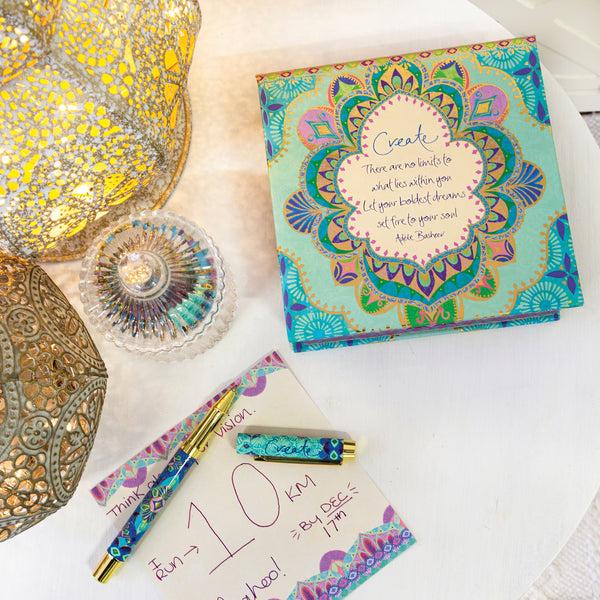 Create
There are no limits to
what lies within you
Let your boldest dreams
set fire to your soul
Adèle Basheer
Create
vision.
Think
I RUN → 10 KM
BY DEC
17TH
ahoo!